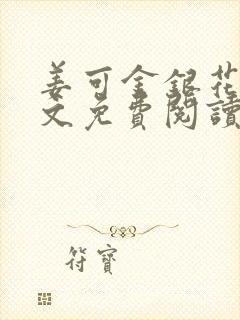 姜可金銀花
文免費閱讀
符寶